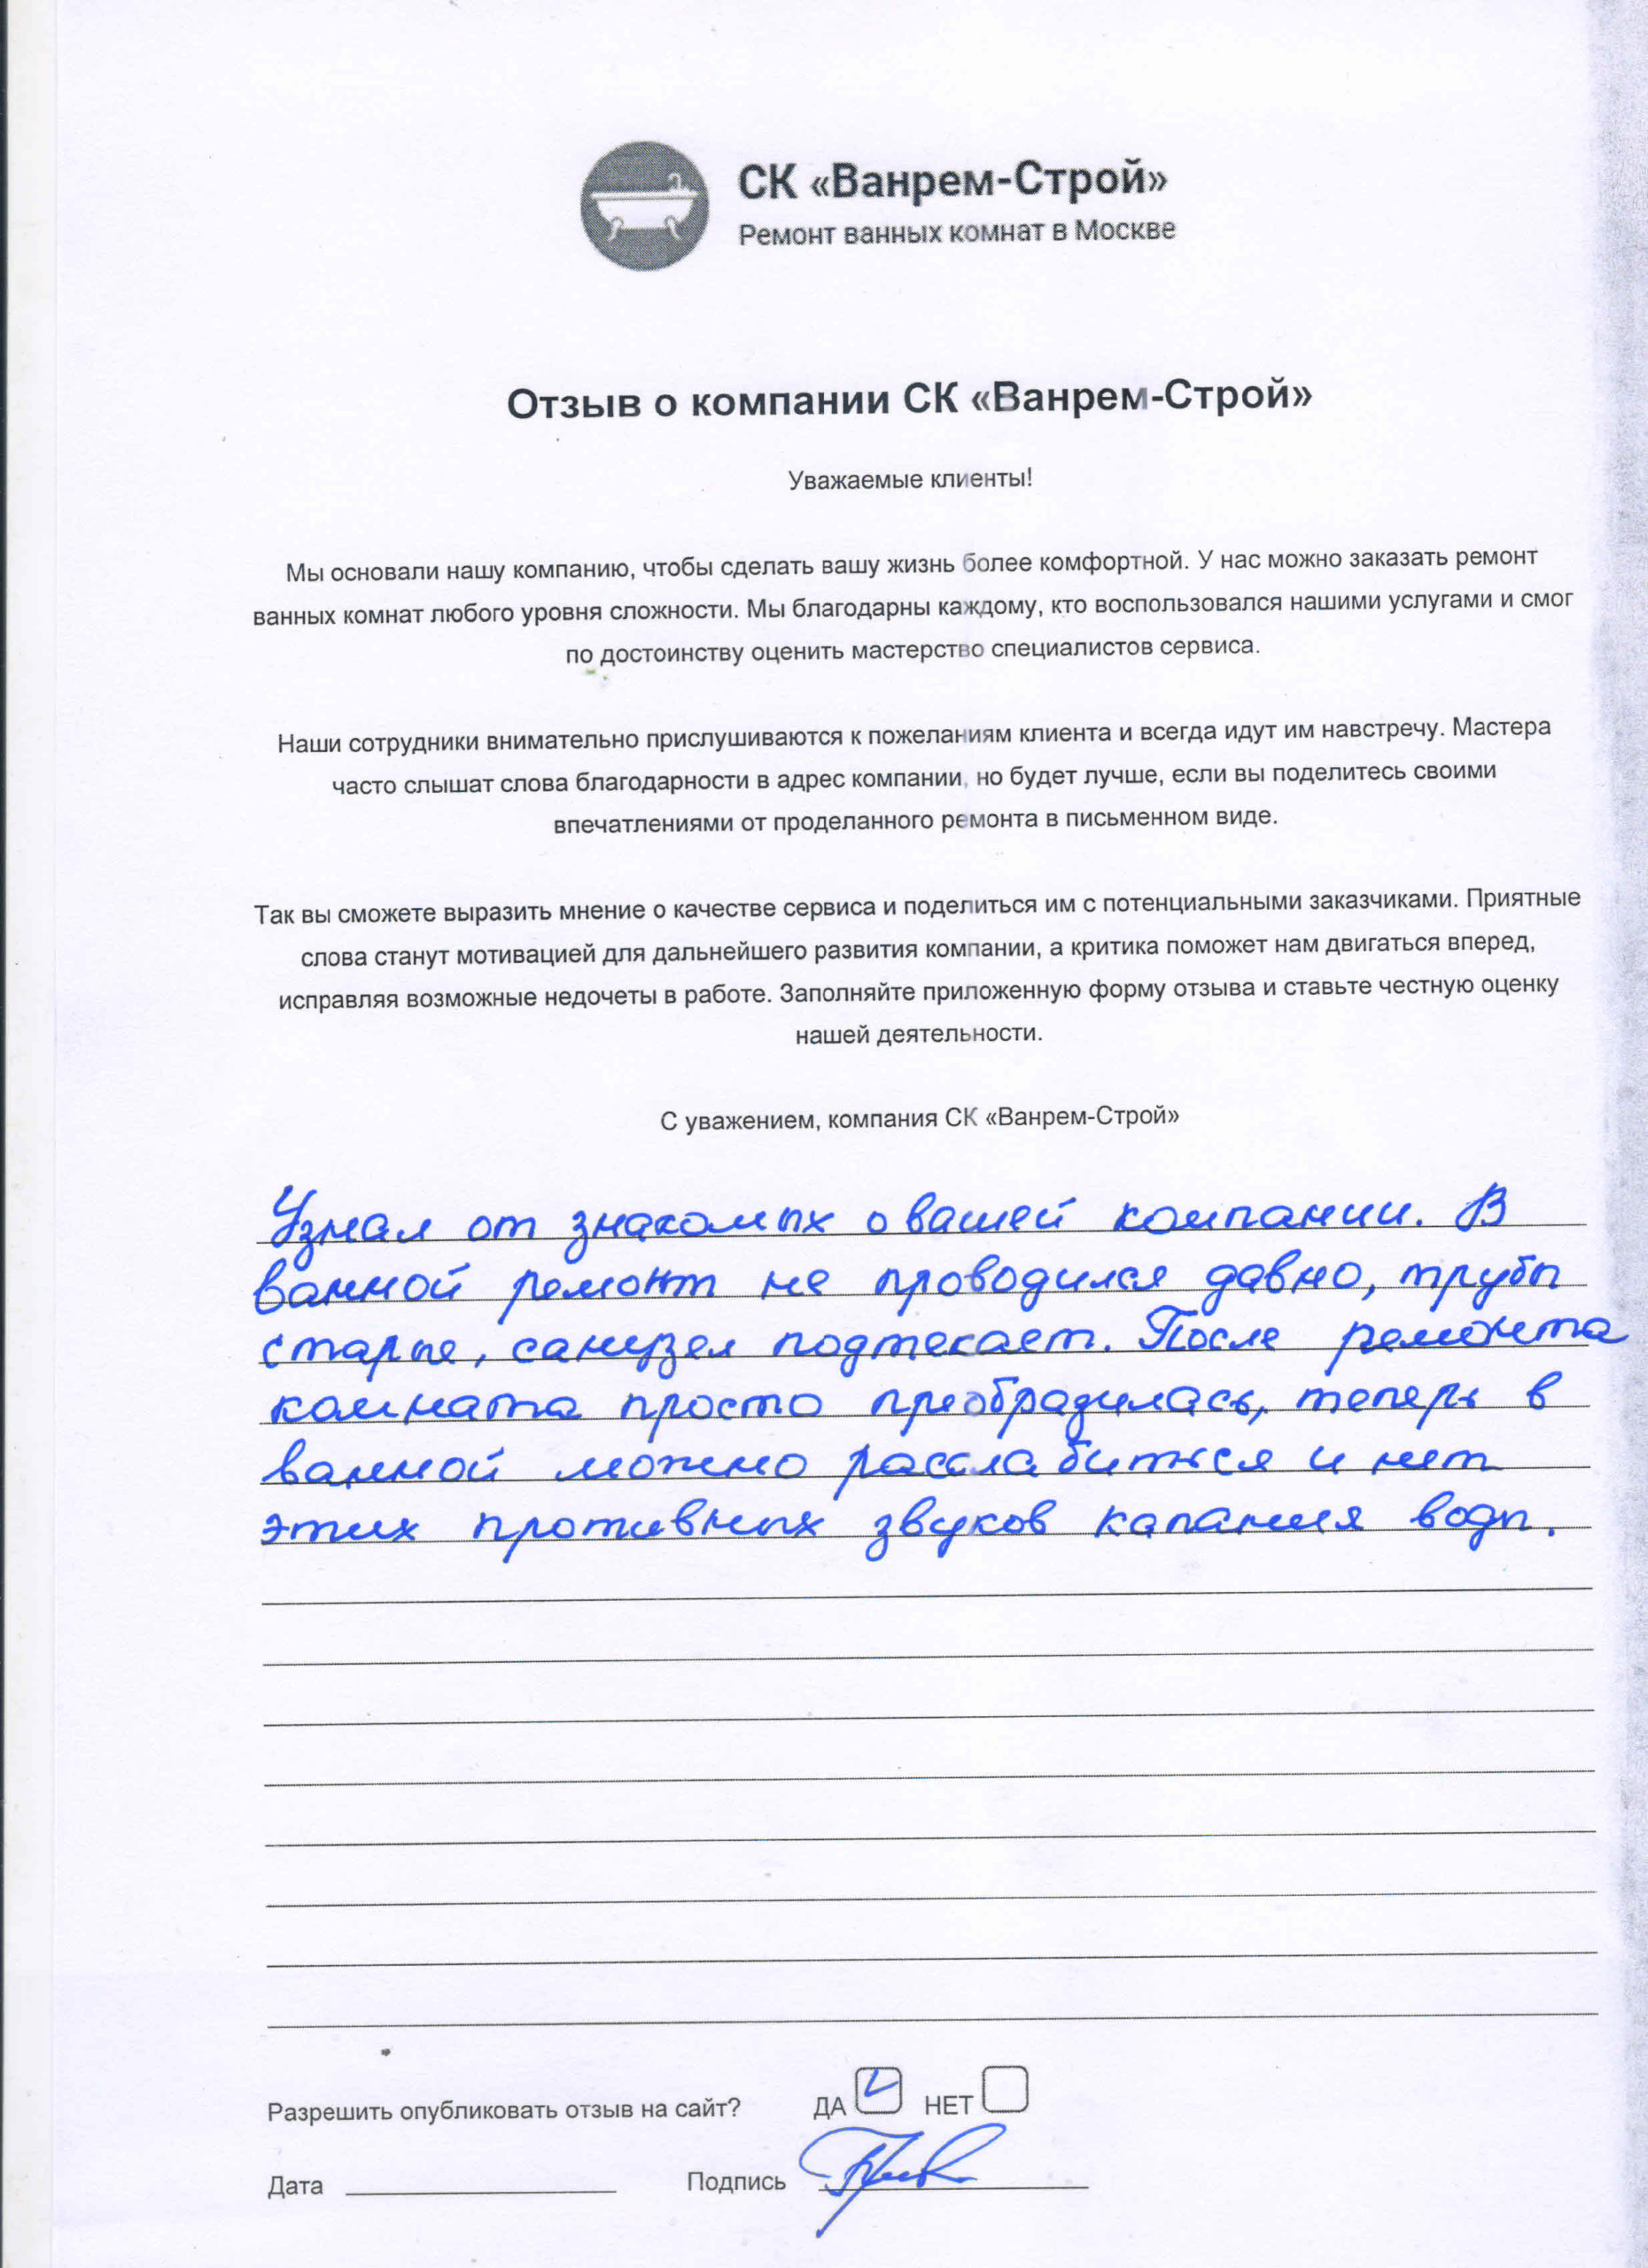 СК «Ванрем-Строй»
Ремонт ванных комнат в Москве
Отзыв о компании СК «Ванрем-Строй»
Уважаемые клиенты!
Мы основали нашу компанию, чтобы сделать вашу жизнь более комфортной. У нас можно заказать ремонт
ванных комнат любого уровня сложности. Мы благодарны каждому, кто воспользовался нашими услугами и смог
по достоинству оценить мастерство специалистов сервиса.
Наши сотрудники внимательно прислушиваются к пожеланиям клиента и всегда идут им навстречу. Мастера
часто слышат слова благодарности в адрес компании, но будет лучше, если вы поделитесь своими
впечатлениями от проделанного ремонта в письменном виде.
Так вы сможете выразить мнение о качестве сервиса и поделиться им с потенциальными заказчиками. Приятные
слова станут мотивацией для дальнейшего развития компании, а критика поможет нам двигаться вперед,
исправляя возможные недочеты в работе. Заполняйте приложенную форму отзыва и ставьте честную оценку
нашей деятельности.
С уважением, компания СК «Ванрем-Строй»
Узнал от знакомых о вашей компании. В
ванной ремонт не проводился давно, трубы
старые, санузел подтекает. После ремонта
комната просто преобразилась, теперь в
ванной можно расслабиться и нет
этих противных звуков капания воды.
Разрешить опубликовать отзыв на сайт? ДА НЕТ
Дата Подпись